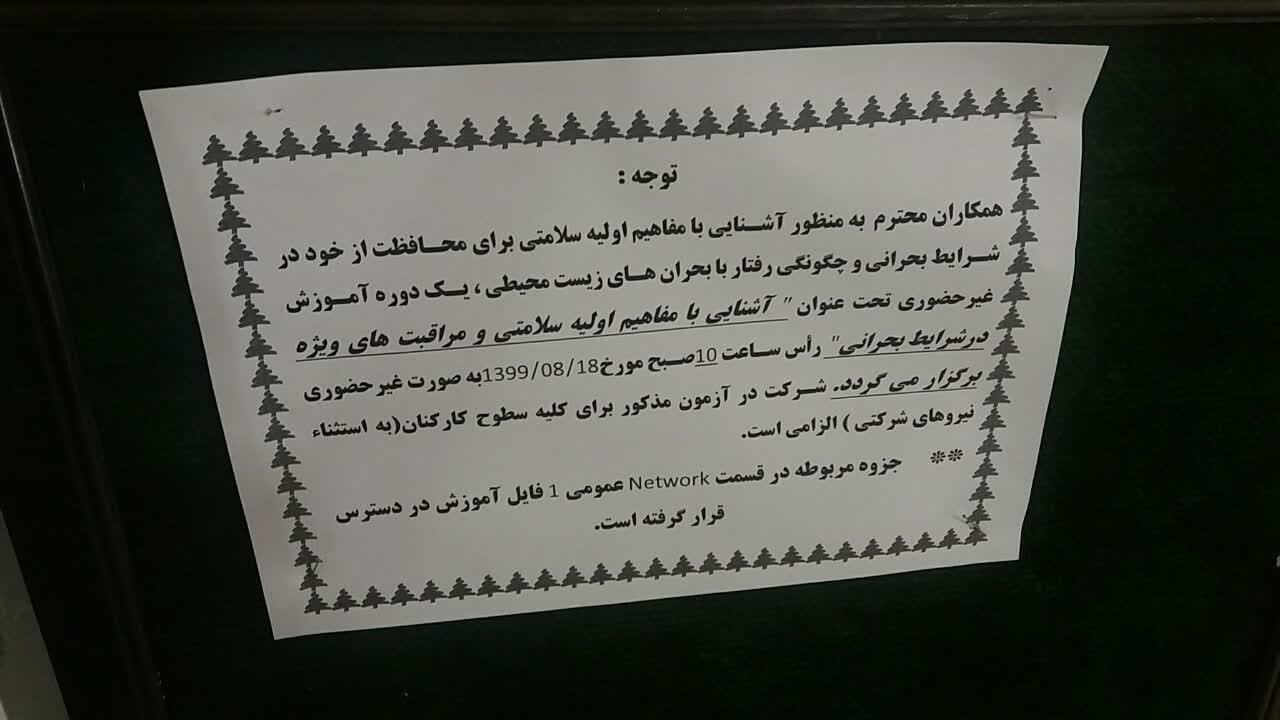 توجه :
همکاران محترم به منظور آشنایی با مفاهیم اولیه سلامتی برای محافظت از خود در
شرایط بحرانی و چگونگی رفتار با بحران های زیست محیطی ، یک دوره آموزش
غیرحضوری تحت عنوان " آشنایی با مفاهیم اولیه سلامتی و مراقبت های ویژه
درشرایط بحرانی" رأس ساعت 10صبح مورخ1399/08/18به صورت غیرحضوری
برگزار می گردد. شرکت در آزمون مذکور برای کلیه سطوح کارکنان(به استثناء
نیروهای شرکتی ) الزامی است.
** جزوه مربوطه در قسمت Network عمومی 1 فایل آموزش در دسترس
قرار گرفته است.